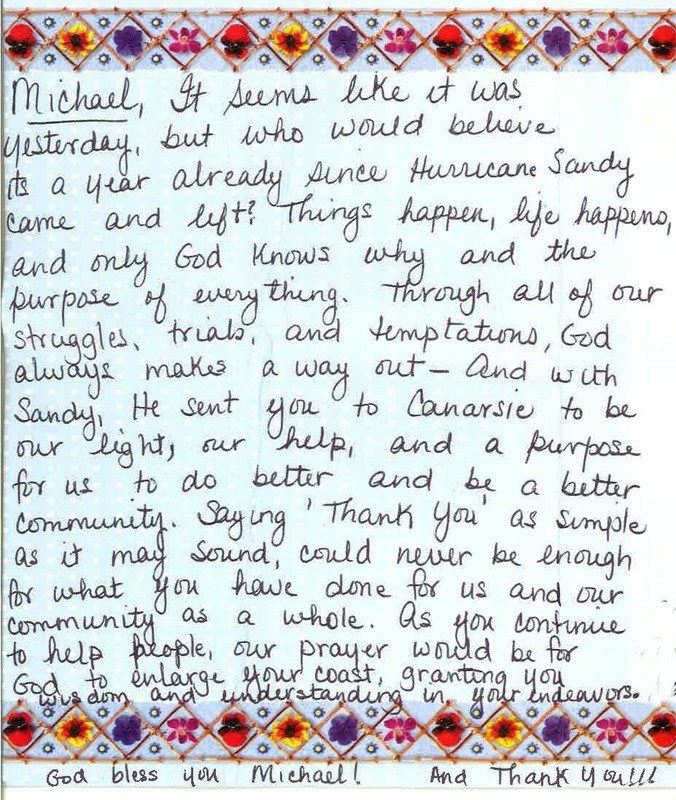 Michael, It seems like it was
yesterday, but who would believe
its a year already since Hurricane Sandy
came and left? Things happen, life happens,
and only God knows why and the
purpose of everything. Through all of our
struggles, trials, and temptations, God
always makes a way out - And with
Sandy, He sent you to Canarsie to be
our light, our help, and a purpose
for us to do better and be a better
community. Saying 'Thank You' as simple
as it may sound, could never be enough
for what you have done for us and our
community as a whole. As you continue
to help people, our prayer would be for
God to enlarge your coast, granting you
wisdom and understanding in your endeavors.
God bless you Michael! And Thank You!!!